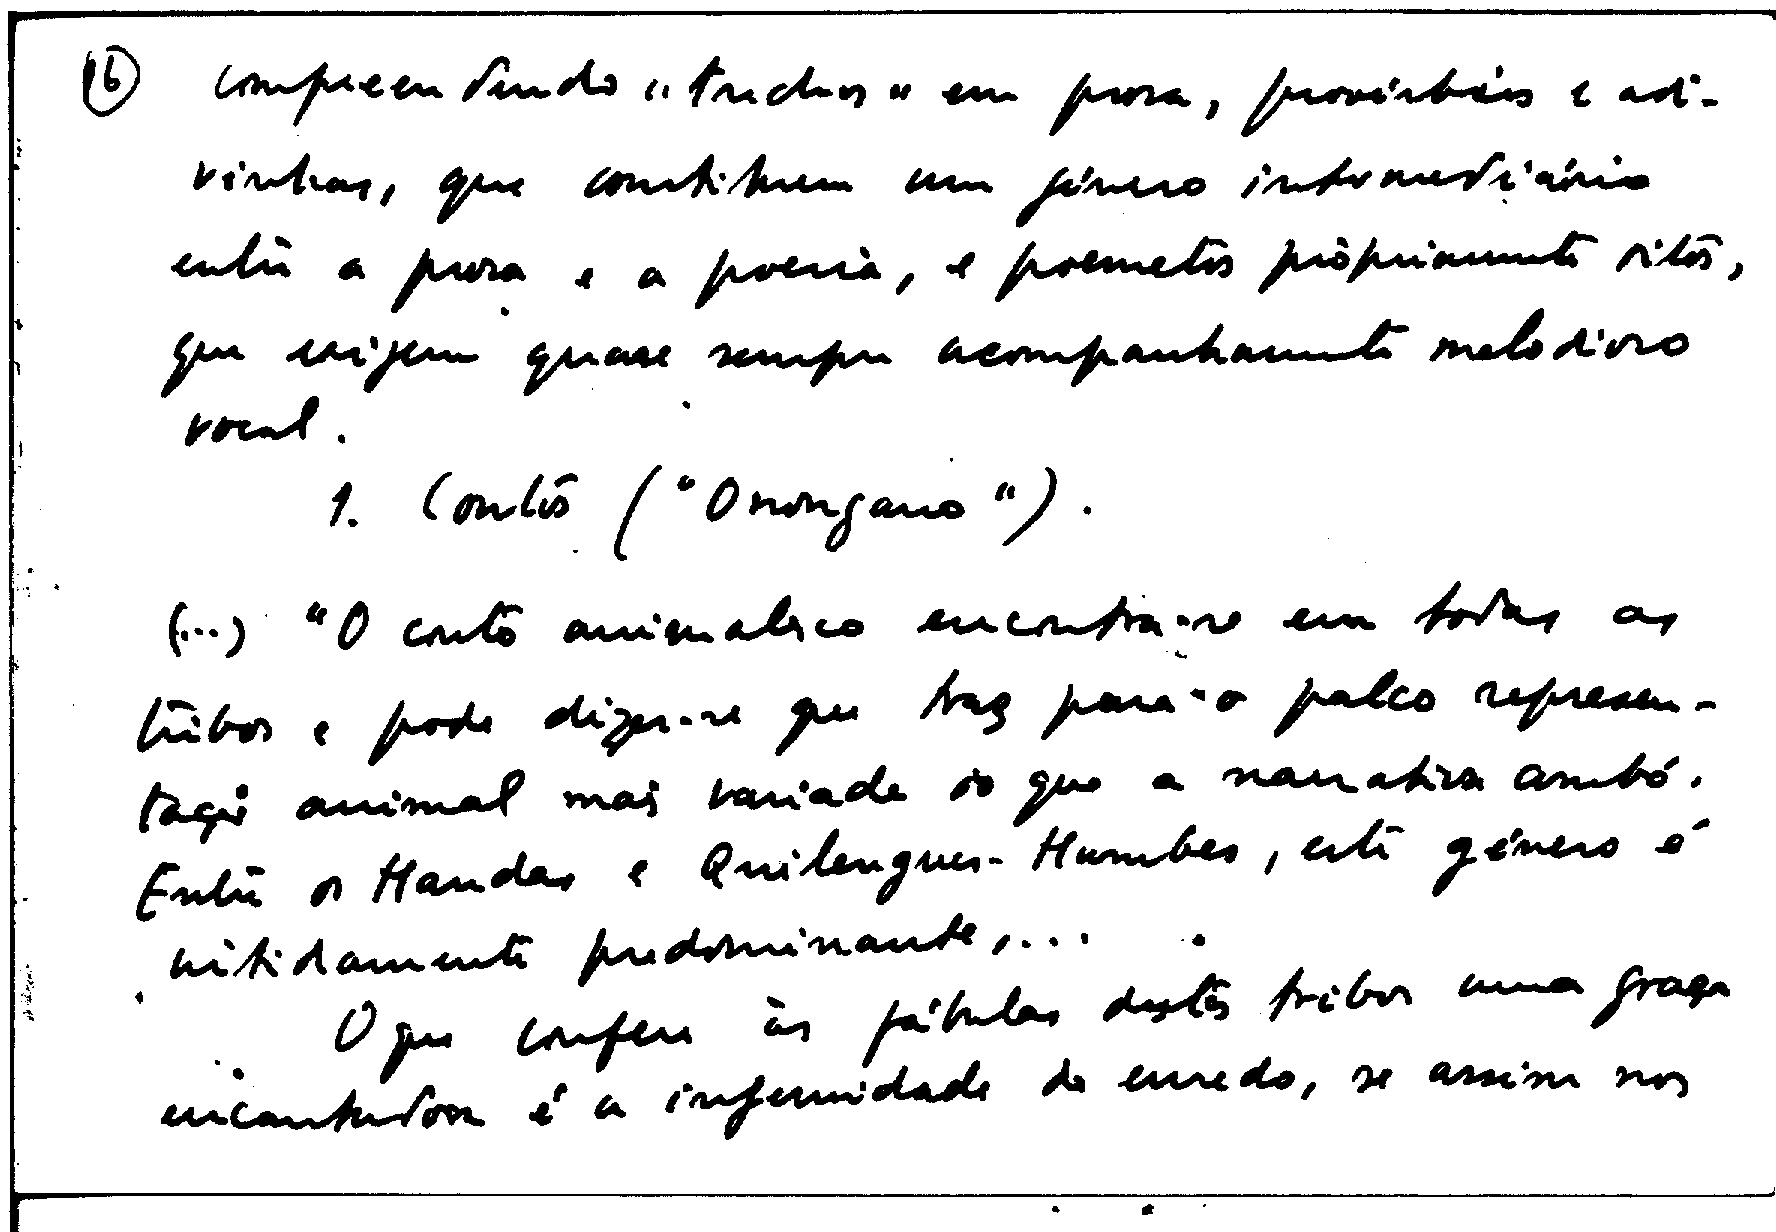 16 compreendendo "trechos" em prosa, provérbios e adi-
vinhas, que constituem um género intermediário
entre a prosa e a poesia, e poemetos pròpriamente ditos,
que exigem quase sempre acompanhamento melodioso
vocal.
1. Contos ("Onongano").
(...) "O conto animalesco encontra-se em todas as
tribos e pode dizer-se que traz para o palco represen-
tação animal mais variada do que a narrativa ambó.
Entre os Handas e Quilengues-Humbes, este género é
nitidamente predominante,...
O que confere às fábulas destas tribos uma graça
encantadora é a ingenuidade do enredo, se assim nos